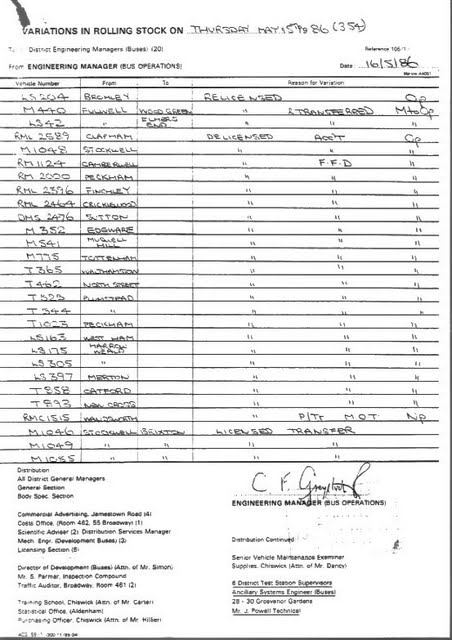 VARIATIONS IN ROLLING STOCK ON THURSDAY MAY 15TH 86 (354)
To: District Engineering Managers (Buses) (20) Reference 106/1
From ENGINEERING MANAGER (BUS OPERATIONS) Date 16/5/86
Vehicle Number From To Reason for Variation
LS204 BROMLEY RELICENSED Op
M440 FULWELL WOOD GREEN " & TRANSFERRED M to Op
LS42 " ELMERS END " " "
RML 2589 CLAPHAM DELICENSED ACC'T Op
M1048 STOCKWELL " " "
RM1124 CAMBERWELL " F.F.D "
RM 2000 PECKHAM " " "
RML 2396 FINCHLEY " " "
RML 2464 CRICKLEWOOD " " "
DMS 2476 SUTTON " " "
M352 EDGWARE " " "
M541 MUSWELL HILL " " "
M775 TOTTENHAM " " "
T365 WALTHAMSTOW " " "
T462 NORTH STREET " " "
T523 PLUMSTEAD " " "
T544 " " " "
T1023 PECKHAM " " "
LS163 WEST HAM " " "
LS175 HARROW WEALD " " "
LS305 " " " "
LS397 MERTON " " "
T858 CATFORD " " "
T893 NEW CROSS " " "
RMC1515 WANDSWORTH " P/Tr M.O.T. Np
M1046 STOCKWELL BRIXTON LICENSED TRANSFER
M1049 " " " "
M1055 " " " "
Distribution
All District General Managers
General Section
Body Spec. Section
ENGINEERING MANAGER (BUS OPERATIONS)
Commercial Advertising, Jamestown Road (4)
Costs Office, (Room 462, 55 Broadway) (1)
Scientific Adviser (2) Distribution Services Manager
Mech. Engr. (Development Buses) (3)
Licensing Section (5)
Distribution Continued
Director of Development (Buses) (Attn. of Mr. Simon)
Mr. S. Parmar, Inspection Compound
Traffic Auditor, Broadway, Room 461 (2)
Senior Vehicle Maintenance Examiner
Supplies, Chiswick (Attn. of Mr. Dancy)
6 District Test Station Supervisors
Ancillary Systems Engineer (Buses)
28 - 30 Grosvenor Gardens
Mr. J. Powell Technical
Training School, Chiswick (Attn. of Mr. Carter)
Statistical Office, (Aldenham)
Purchasing Officer, Chiswick (Attn. of Mr. Hillier)